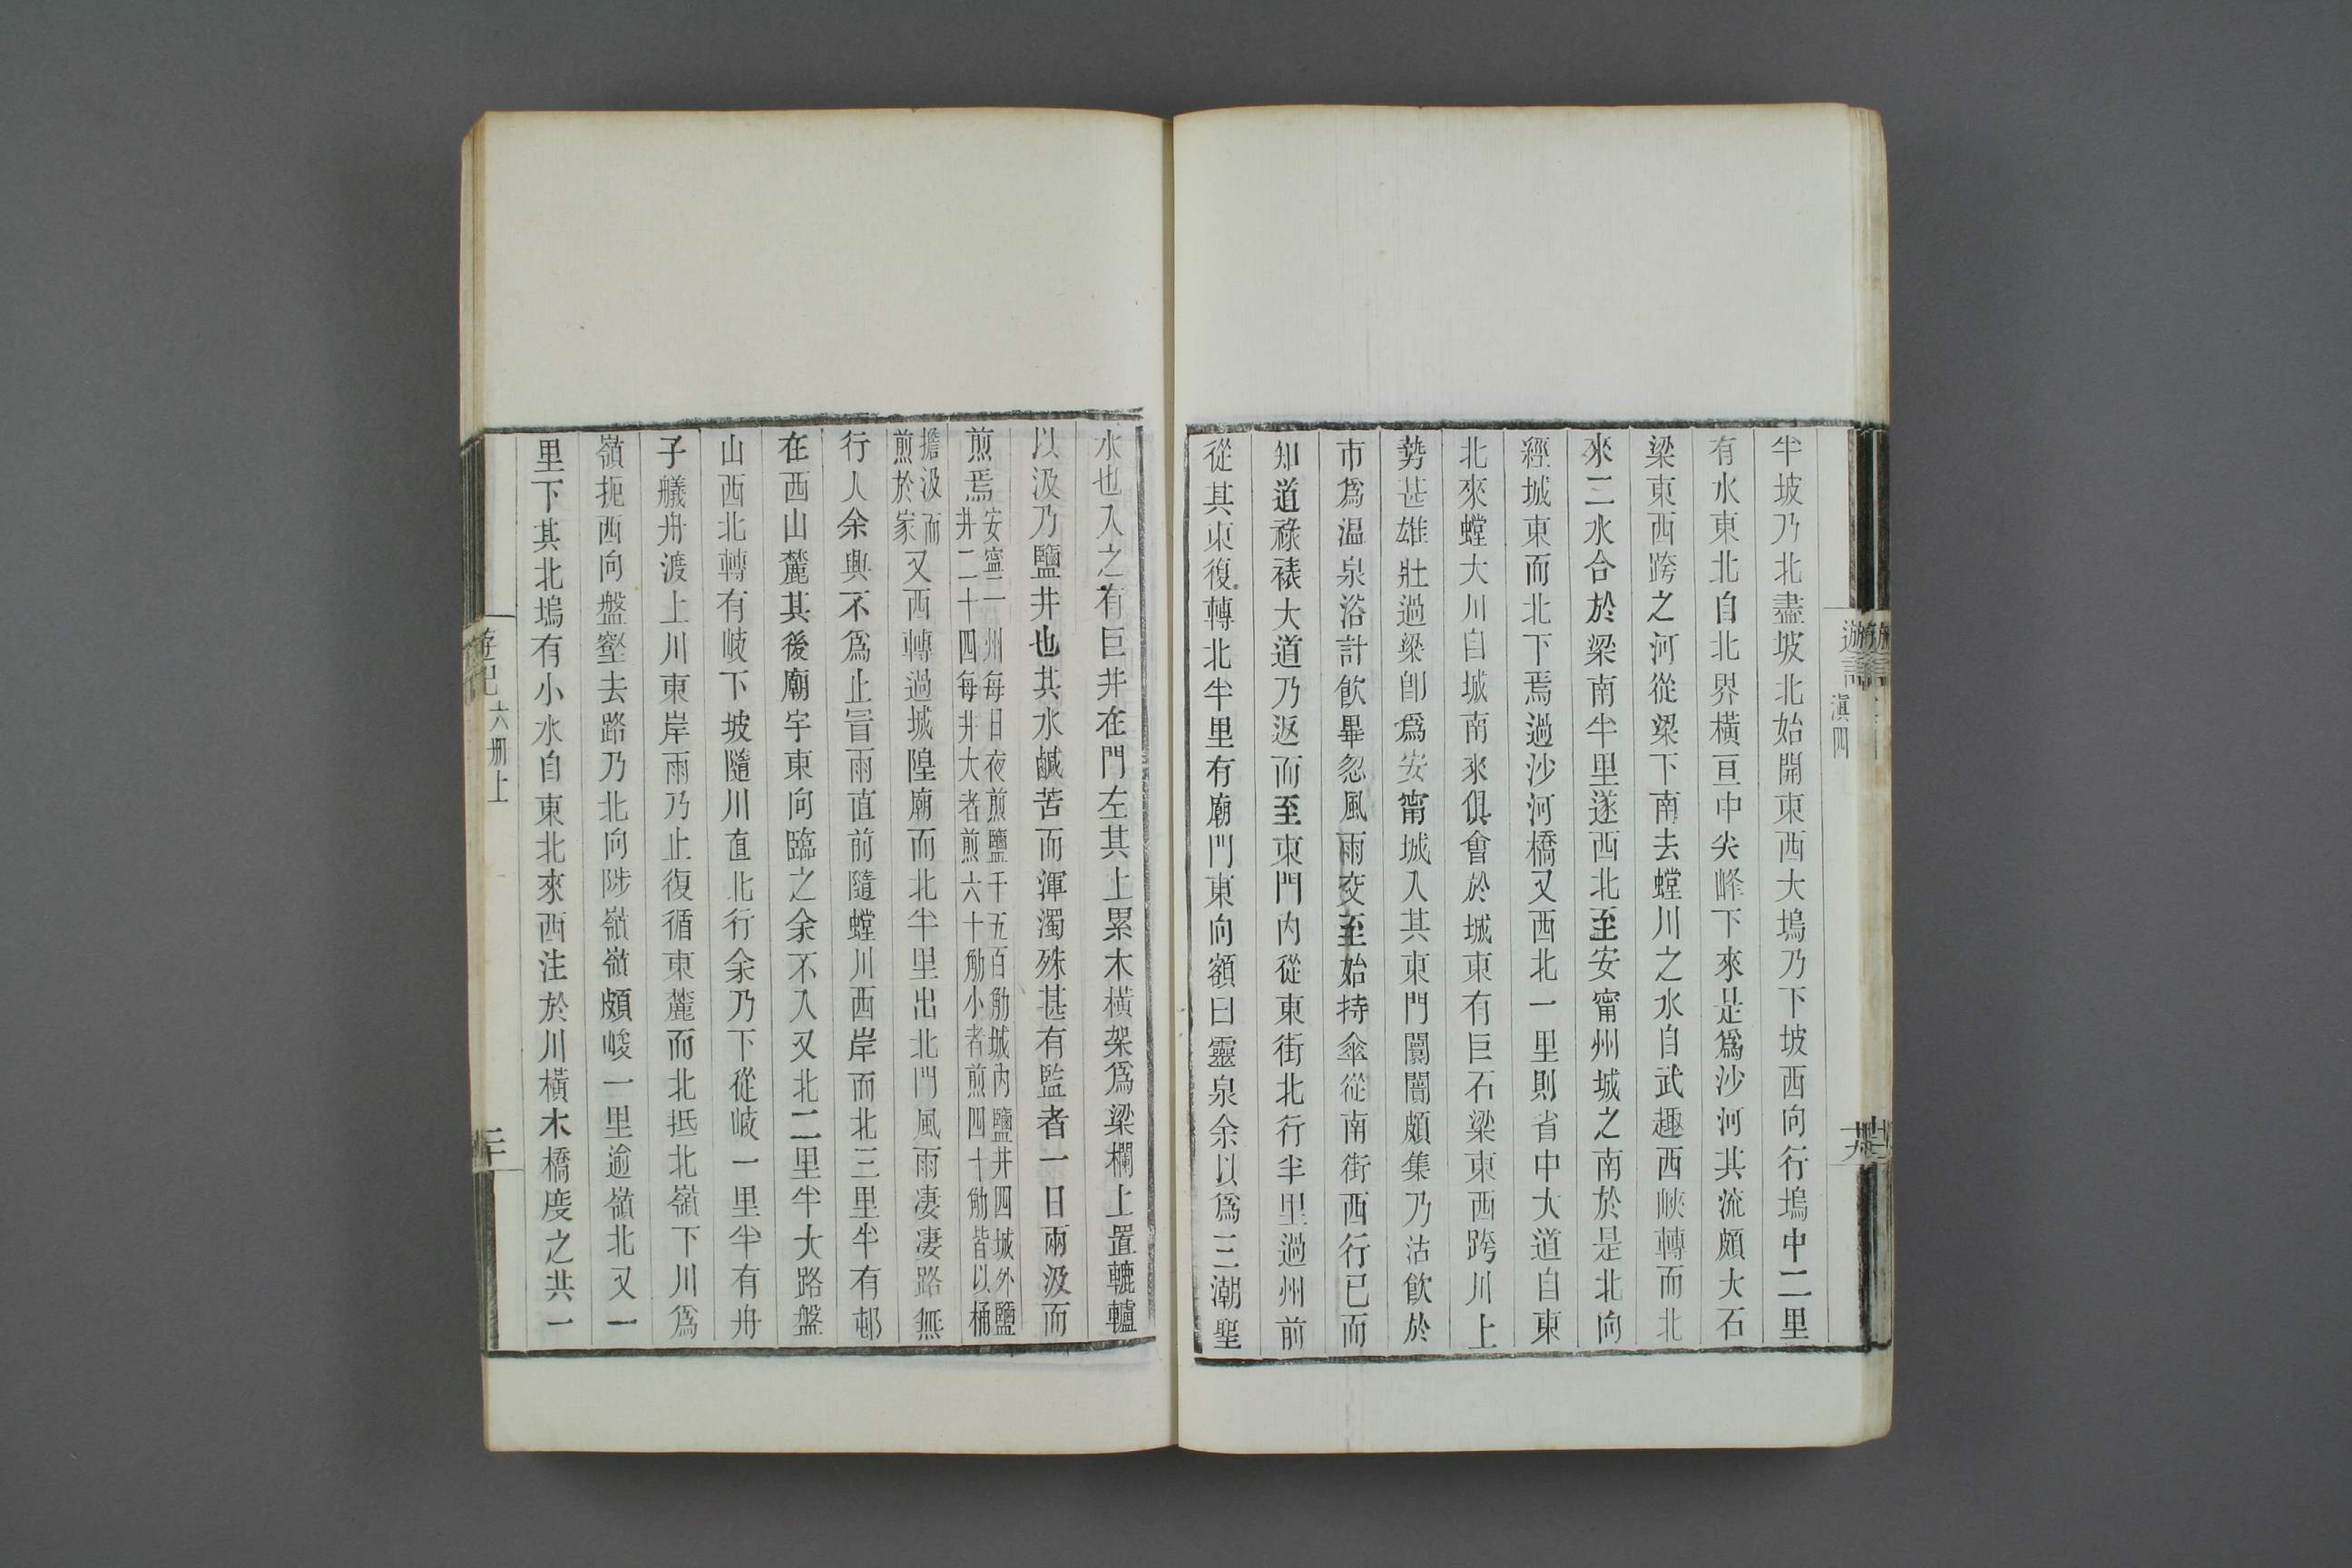 遊記
滇四
半坡乃北盡坡北始開東西大塢乃下坡西向行塢中二里
有水東北自北界橫亘中尖峰下來是爲沙河其流頗大石
梁東西跨之河從梁下南去螳川之水自武趣西峽轉而北
來二水合於梁南半里遂西北至安甯州城之南於是北向
經城東而北下焉過沙河橋又西北一里則省中大道自東
北來螳大川自城南來俱會於城東有巨石梁東西跨川上
勢甚雄壯過梁卽爲安甯城入其東門闤闠頗集乃沽飲於
市爲温泉浴計飲畢忽風雨交至始持傘從南街西行已而
知道祿裱大道乃返而至東門內從東街北行半里過州前
從其東復轉北半里有廟門東向額曰靈泉余以爲三潮聖
水也入之有巨井在門左其上累木橫架爲梁欄上置轆轤
以汲乃鹽井也其水鹹苦而渾濁殊甚有監者一日兩汲而
煎焉安寧一州每日夜煎鹽千五百觔城內鹽井四城外鹽
井二十四每井大者煎六十觔小者煎四十觔皆以桶
擔汲而
煎於家又西轉過城隍廟而北半里出北門風雨凄凄路無
行人余興不爲止冒雨直前隨螳川西岸而北三里半有邨
在西山麓其後廟宇東向臨之余不入又北二里半大路盤
山西北轉有岐下坡隨川直北行余乃下從岐一里半有舟
子艤舟渡上川東岸雨乃止復循東麓而北抵北嶺下川爲
嶺扼西向盤壑去路乃北向陟嶺嶺頗峻一里逾嶺北又一
里下其北塢有小水自東北來西注於川橫木橋度之共一
遊記
六册上
二十